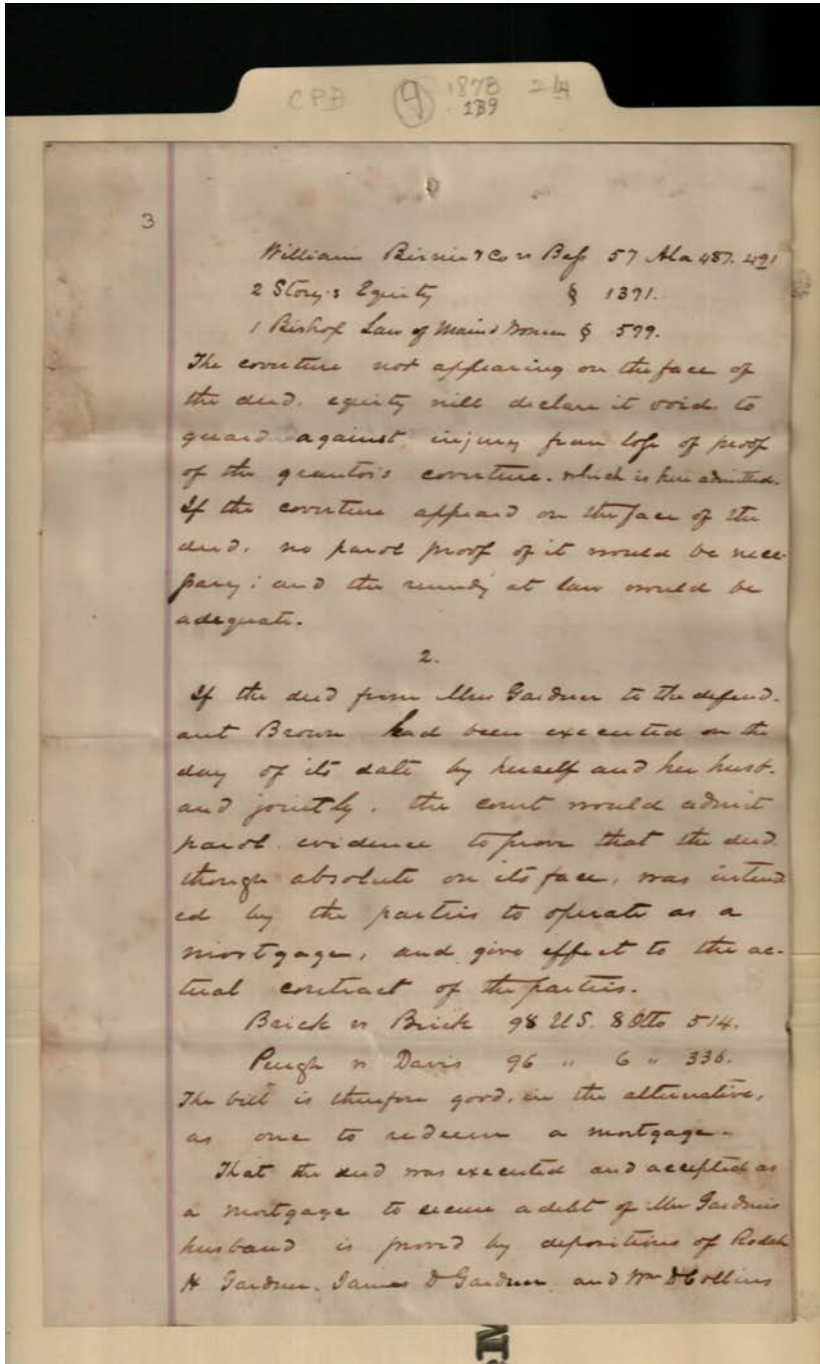 CPB 4 1878 214
139
3
William Birnie & Co vs Bass 57 Ala 487. 491
2 Story's Equity § 1391.
1 Bishop Law of Marrd Women § 599.
The coverture not appearing on the face of
the deed. equity will declare it void. to
guard against injury from loss of proof
of the grantor's coverture. which is here admitted.
If the coverture appeard on the face of the
deed. no parol proof of it would be nece-
ssary; and the remedy at law would be
adequate.
2.
If the deed from Mrs Gardner to the defend-
ant Brown had been executed on the
day of its date by herself and her husb-
and jointly. the court would admit
parol evidence to prove that the deed.
though absolute on its face, was intend
ed by the parties to operate as a
mortgage, and give effect to the ac-
tual contract of the parties.
Brick vs Brick 98 U.S. 8 Otto 514.
Peugh vs Davis 96 " 6 " 336.
The bill is therefore good. in the alternative,
as one to redeem a mortgage.
That the deed was executed and accepted as
a mortgage to secure a debt of Mrs Gardner's
husband is proved by depositions of
H Gardner. James D Gardner and Wm D Collins